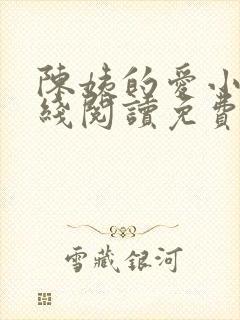 陳姨的愛小
綫閱讀免費
雪藏銀河